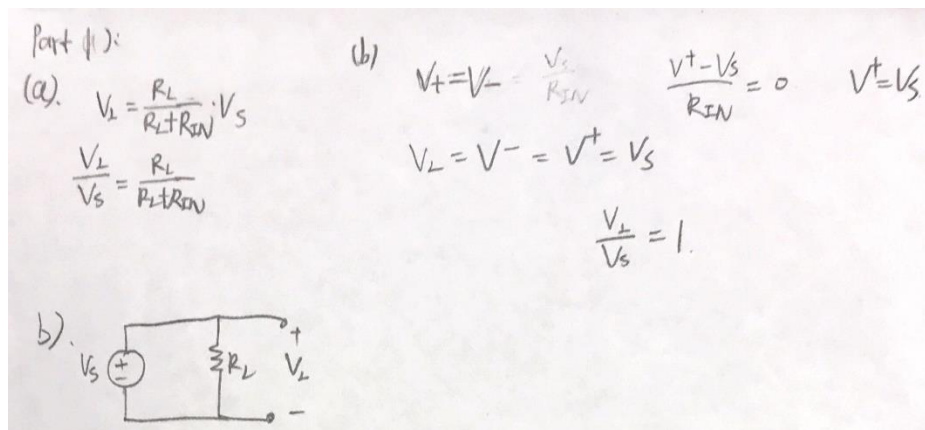 Part (1):
(a). V_L = R_L / (R_L + R_IN) · V_S
V_L / V_S = R_L / (R_L + R_IN)
(b) V+ = V- = V_S / R_IN
(V^+ - V_S) / R_IN = 0
V^+ = V_S
V_L = V^- = V^+ = V_S
V_L / V_S = 1.
b).
V_S + - R_L + V_L -